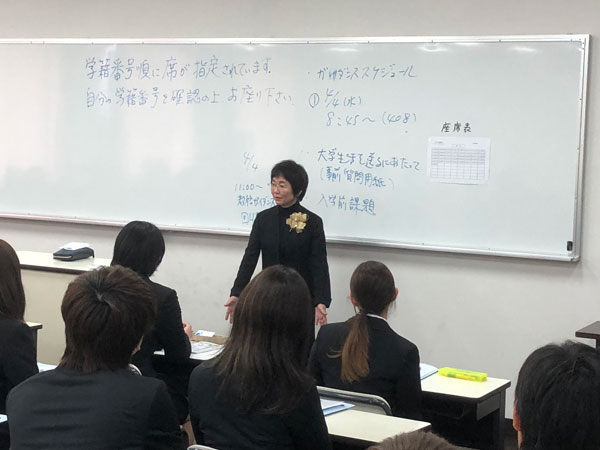 学籍番号順に席が指定されています。
自分の学籍番号を確認の上お座り下さい。
・ガイダンススケジュール
① 4/4(水)
8:45〜(408)
座席表
4/4
11:00〜
・大学生活を送るにあたって
(事前質問用紙)
入学前課題